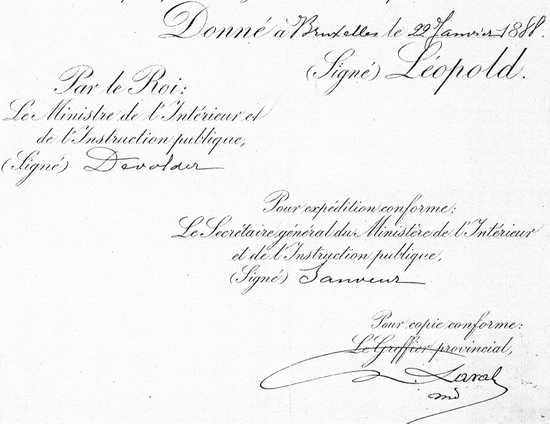 Donné à Bruxelles le 22 Janvier 1888.
(Signé) Léopold.
Par le Roi:
Le Ministre de l'Intérieur et
de l'Instruction publique,
(Signé) Devolder
Pour expédition conforme:
Le Secrétaire général du Ministère de l'Intérieur
et de l'Instruction publique,
(Signé) Sauveur
Pour copie conforme:
Le Greffier provincial,